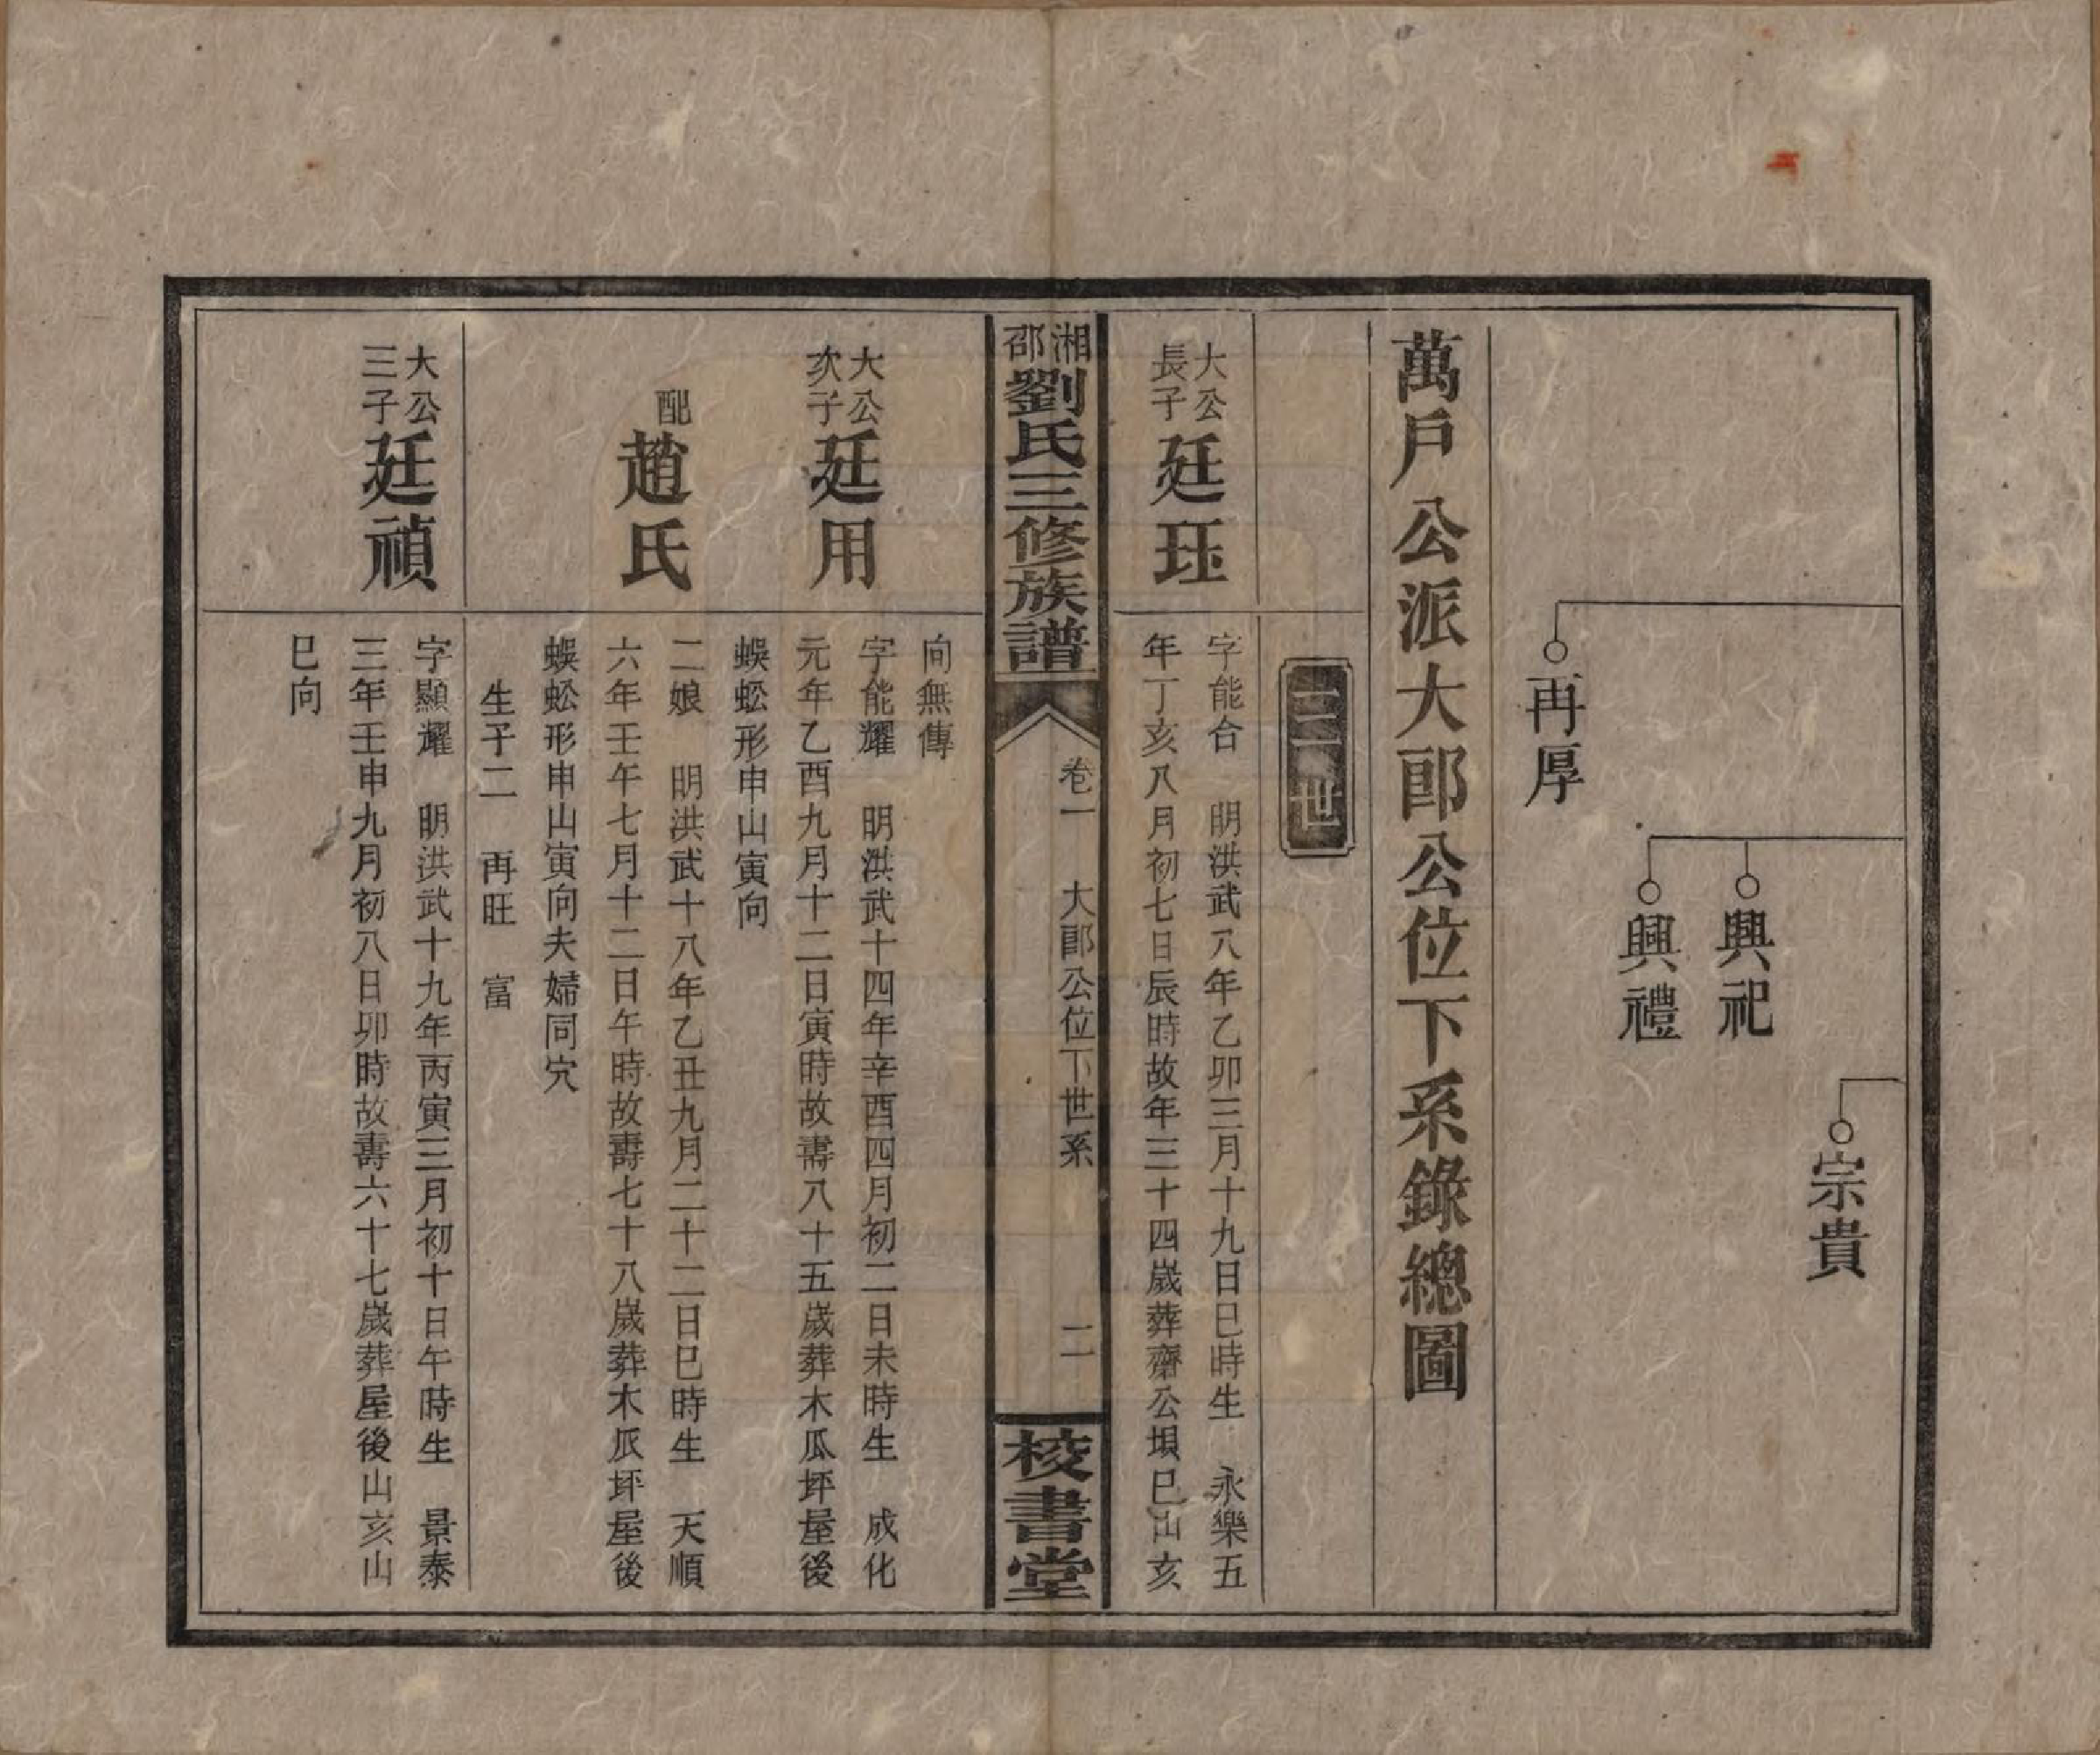 宗貴
興祀
興禮
再厚
萬戶公派大郎公位下系錄總圖
三世
大公長子
廷珏
字能合 明洪武八年乙卯三月十九日巳時生 永樂五
年丁亥八月初七日辰時故年三十四歲葬齋公垻巳山亥
湘邵劉氏三修族譜
卷一 大郎公位下世系 二
校書堂
向無傳
大公次子
廷用
字能耀 明洪武十四年辛酉四月初二日未時生 成化
元年乙酉九月十二日寅時故壽八十五歲葬木瓜坪屋後
蜈蚣形申山寅向
配
趙氏
二娘 明洪武十八年乙丑九月二十二日巳時生 天順
六年壬午七月十二日午時故壽七十八歲葬木瓜坪屋後
蜈蚣形申山寅向夫婦同穴
生子二 再旺 富
大公三子
廷禎
字顯耀 明洪武十九年丙寅三月初十日午時生 景泰
三年壬申九月初八日卯時故壽六十七歲葬屋後山亥山
巳向